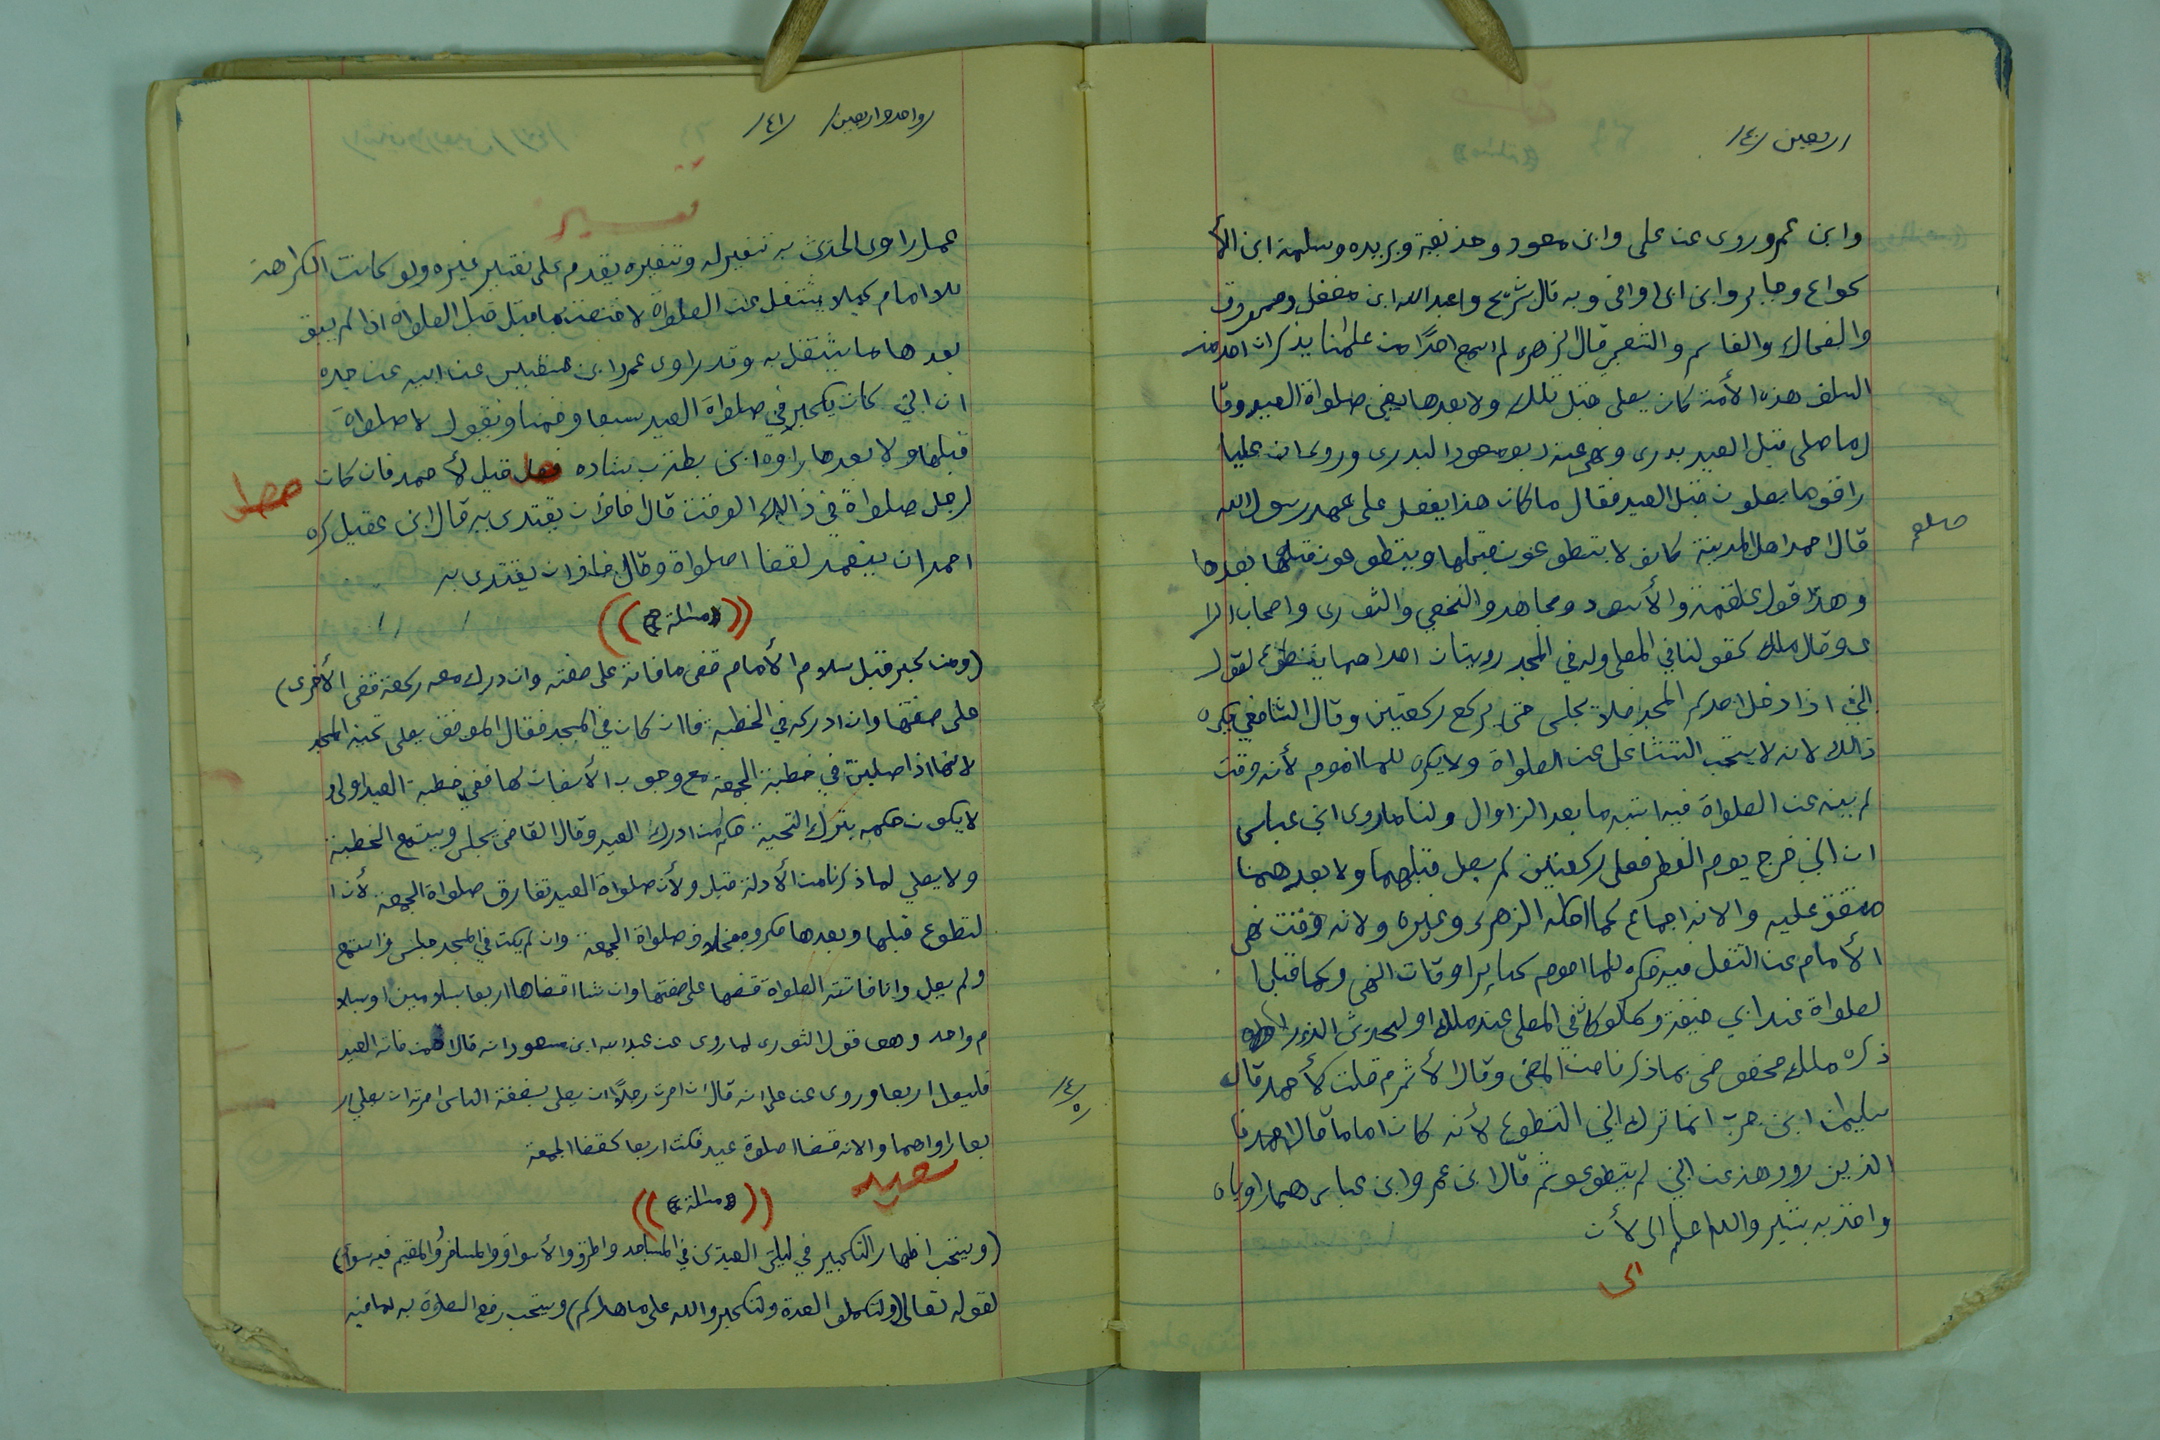 اربعين /٤٠/
وابن عمر وروى عن على وابن مسعود وحذيفة وبريده وسلمة ابن الأ
كواع وجابر وابن ابى اوافى وبه قال شريح واعبد الله ابن مغفل ومسروق
والضحاك والقاسم والشعبى قال الزهرى لم اسمع احدًا من علمائنا يذكر ان احد من
السلف هذه الأمة كان يصلى قبل تلك ولا بعدها يعني صلواة العيد وقا
ل ما صلى قبل العيد بدرى ونهى عنه ابو مسعود البدرى وروى ان عليا
راقوما يصلون قبل العيد فقال ما كان هذا يفعل على عهد رسول الله
صلعم
قال احمد اهل المدينة كانو لا يتطوعون قبلها ويتطوعون بعدها
وهذا قول علقمة والأسود ومجاهد والنخعي والثورى واصحاب الرا
ى وقال ملك كقولنا في المصلى وله في المسجد رويتان احداهما يتطوع لقول
النبي اذا دخل احدكم المسجد فلا يجلس حتى يركع ركعتين وقال الشافعي يكره
ذالك لانه لا يستحب التشاغل عن الصلواة ولا يكره للماموم لأنه وقت
لم ينه عن الصلواة فيه اشبه ما بعد الزاوال ولنا ما روى ابن عباس
ان النبي خرج يوم الفطر فصلى ركعتين لم يصل قبلهما ولا بعدهما
متفق عليه والانه اجماع كما احكه الزهرى وغيره ولانه وقت نهى
الأمام عن التنفل فيه فكره للماموم كسايراوقات النهي وكما قبل ا
لصلواة عند ابي حنيفة وكما لو كان في المصلى عند ملك اولحديث الذى
ذكره ملك مخصوص بما ذكرنا من المعنى وقال الأثرم قلت لأحمد قال
سليمان ابن حرب انما ترك النبي التطوع لأنه كان اماما قال احمد فا
الذين روو هذ عن النبي لم يتطوعو ثم قال ابن عمر وابن عباس هما راوياه
واخذ به يشير والله اعلم الى لأن
الى
/واحدواربعين/ /٤١/
تفسير
عمل راوى الحديث به تفسير له وتفسيره يقدم على تفسير غيره ولو كانت الكراهة
للامام كيلا يشتغل عن الصلواة لاختصت بما قبل الصلواة اذا لم يبق
بعدها ما يشتغل به وقد راوى عمر ابن شعيب عن ابيه عن جده
ان النبي كان يكبر في صلواة العيد سبعا وخمسا ويقول لا صلواة
قبلها ولا بعدها راوه ابن بطة بسناده فصل قيل لأحمد فان كان
فصل
لرجل صلواة في ذالك الوقت قال اخاف ان يقتدى به قال ابن عقيل كره
احمد ان يتعمد لقضا اصلواة وقال اخاف ان يقتدى به
((مسئلة))
(ومن كبر قبل سلام الأمام قضى ما فاته على صفته وان درك معه ركعة قضى الأخرى)
على صفتها وان ادركه في الخطبة فاان كان في المسجد فقال الموفق يصلى تحية المسجد
لانها اذا صليت في خطبة الجمعة مع وجوب الأنصات لها ففي خطبة العيد اولى و
لا يكون حكمه بترك التحية حكم من ادرك العيد وقال القاضى يجلس ويستمع الخطبة
ولا يصلي لما ذكرنا من الأدلة قبل ولأن صلواة العيد تفارق صلواة الجمعة لأن ا
لتطوع قبلها وبعدها مكروه بخلاف صلواة الجمعة وان لم يكن في المسجد جلس فاستمع
ولم يصلي وانا فاتته الصلواة قضها على صفتها وان شا اقضاها اربعا بسلامين اوسلا
م واحد وهو قول الثورى لما روى عن عبد الله ابن مسعود انه قال من فاته العيد
فليصل اربعا وروى عن على انه قال ان امرت رجلًا ان يصلى بضعفة الناس امرته ان يصلي ار
/٤٠/
بعا راواهما والانه قضا صلوة عيد فكنت اربعا كقضا الجمعة
سعيد
((مسئلة))
(ويستحب اظهار التكبير في ليلتى العيدين في المساجد واطرق والأسواق والمسافر والمقيم فيه سوأ)
لقوله تعالى (ولتكملو العدة ولتكبرو الله على ما هداكم) ويستحب رفع الصوة به لما فيه